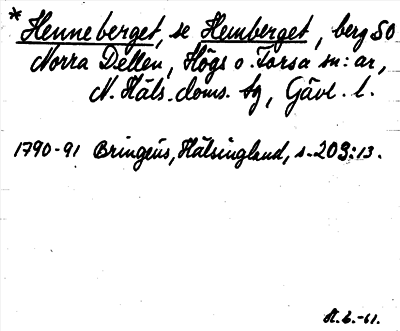 * Henneberget, se Hemberget, berg SO
Norra Dellen, Högs o. Forsa sn:ar,
N. Häls. doms. sg, Gävl. l.
1790-91 Bringéus, Hälsingland, s. 209:13.
-61.